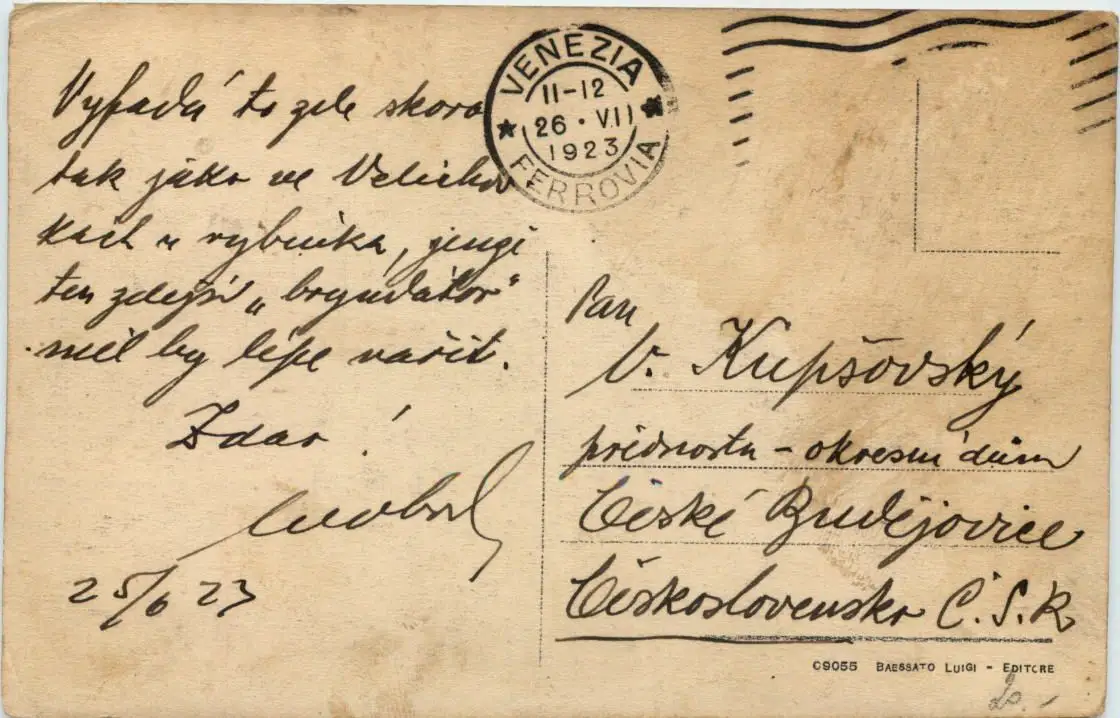 VENEZIA
11-12
26 · VII
1923
FERROVIA
Vypadá to zde skoro
tak jako ve Velichov
kách u rybníka, jengi
ten zdejší „bryndátor"
měl by lépe vařit.
Zdar!
25/6 23
Pan
V. Kupšovský
přednosta - okresní dům
České Budějovice
Československo Č.S.R
09055 BAESSATO LUIGI - EDITORE